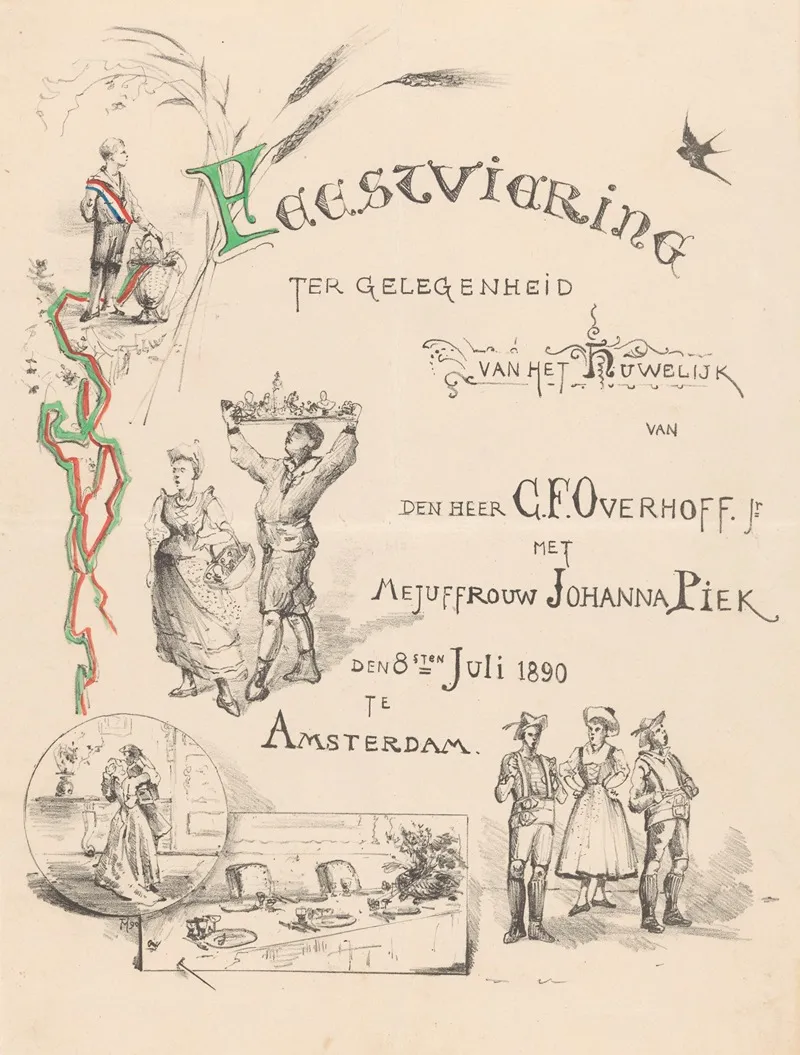 Feestviering
ter gelegenheid
van het Huwelijk
van
den heer C.F. Overhoff. Jr
met
Mejuffrouw Johanna Piek
den 8sten Juli 1890
te
Amsterdam.